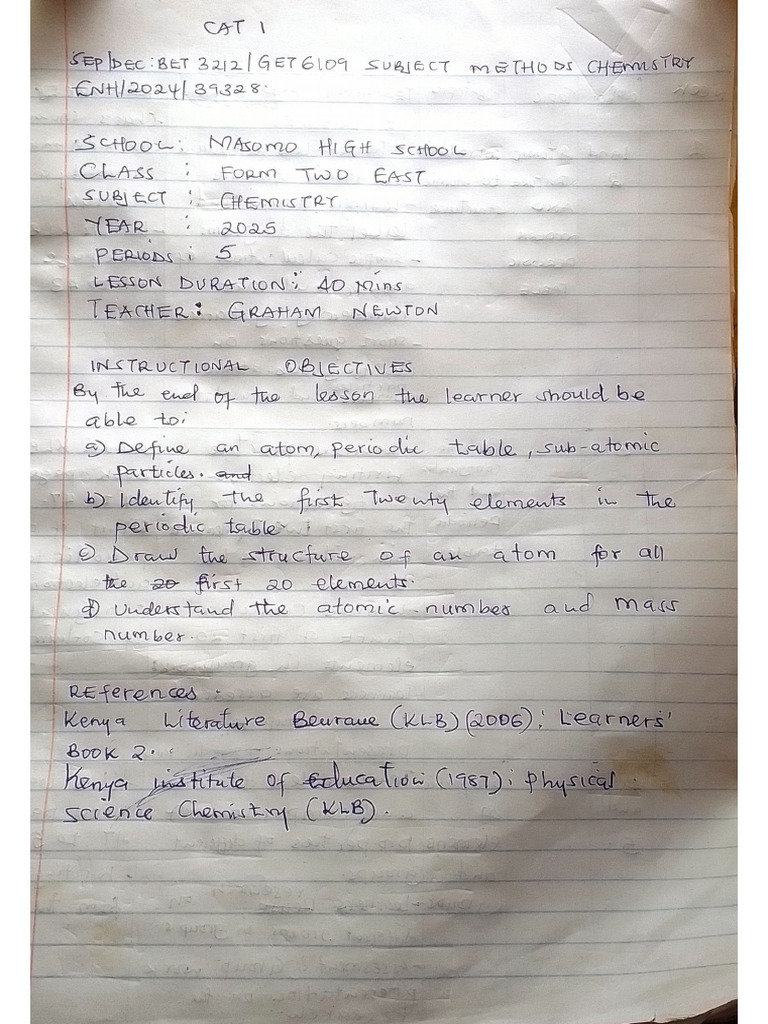 CAT 1
SEP/DEC: BET 3212/GET 6109 SUBJECT METHODS CHEMISTRY
ENH/2024/39328.
SCHOOL: MASOMO HIGH SCHOOL
CLASS : FORM TWO EAST
SUBJECT : CHEMISTRY
YEAR : 2025
PERIODS : 5
LESSON DURATION: 40 Mins
TEACHER: GRAHAM NEWTON
INSTRUCTIONAL OBJECTIVES
By the end of the lesson the learner should be
able to:
a) Define an atom, periodic table, sub-atomic
particles. and
b) Identify the first Twenty elements in the
periodic table
c) Draw the structure of an atom for all
the 20 first 20 elements.
d) Understand the atomic number and mass
number.
References.
Kenya Literature Beuraue (KLB)(2006): Learners'
BOOK 2.
Kenya institute of Education (1987): physical
science Chemistry (KLB).